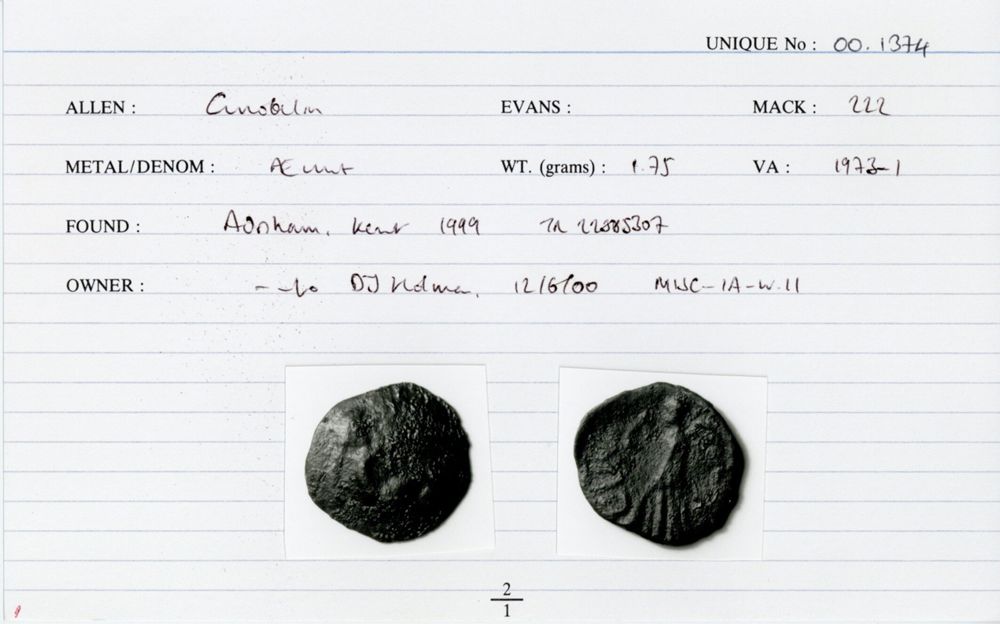 UNIQUE No : 00.1374
ALLEN : Cunobelin EVANS : MACK : 222
METAL/DENOM : Æ unit WT. (grams) : 1.75 VA : 1973-1
FOUND : Adisham, Kent 1999 TR 22885307
OWNER : DJ Holman, 12/6/00 MWC-IA-W.11
2
1